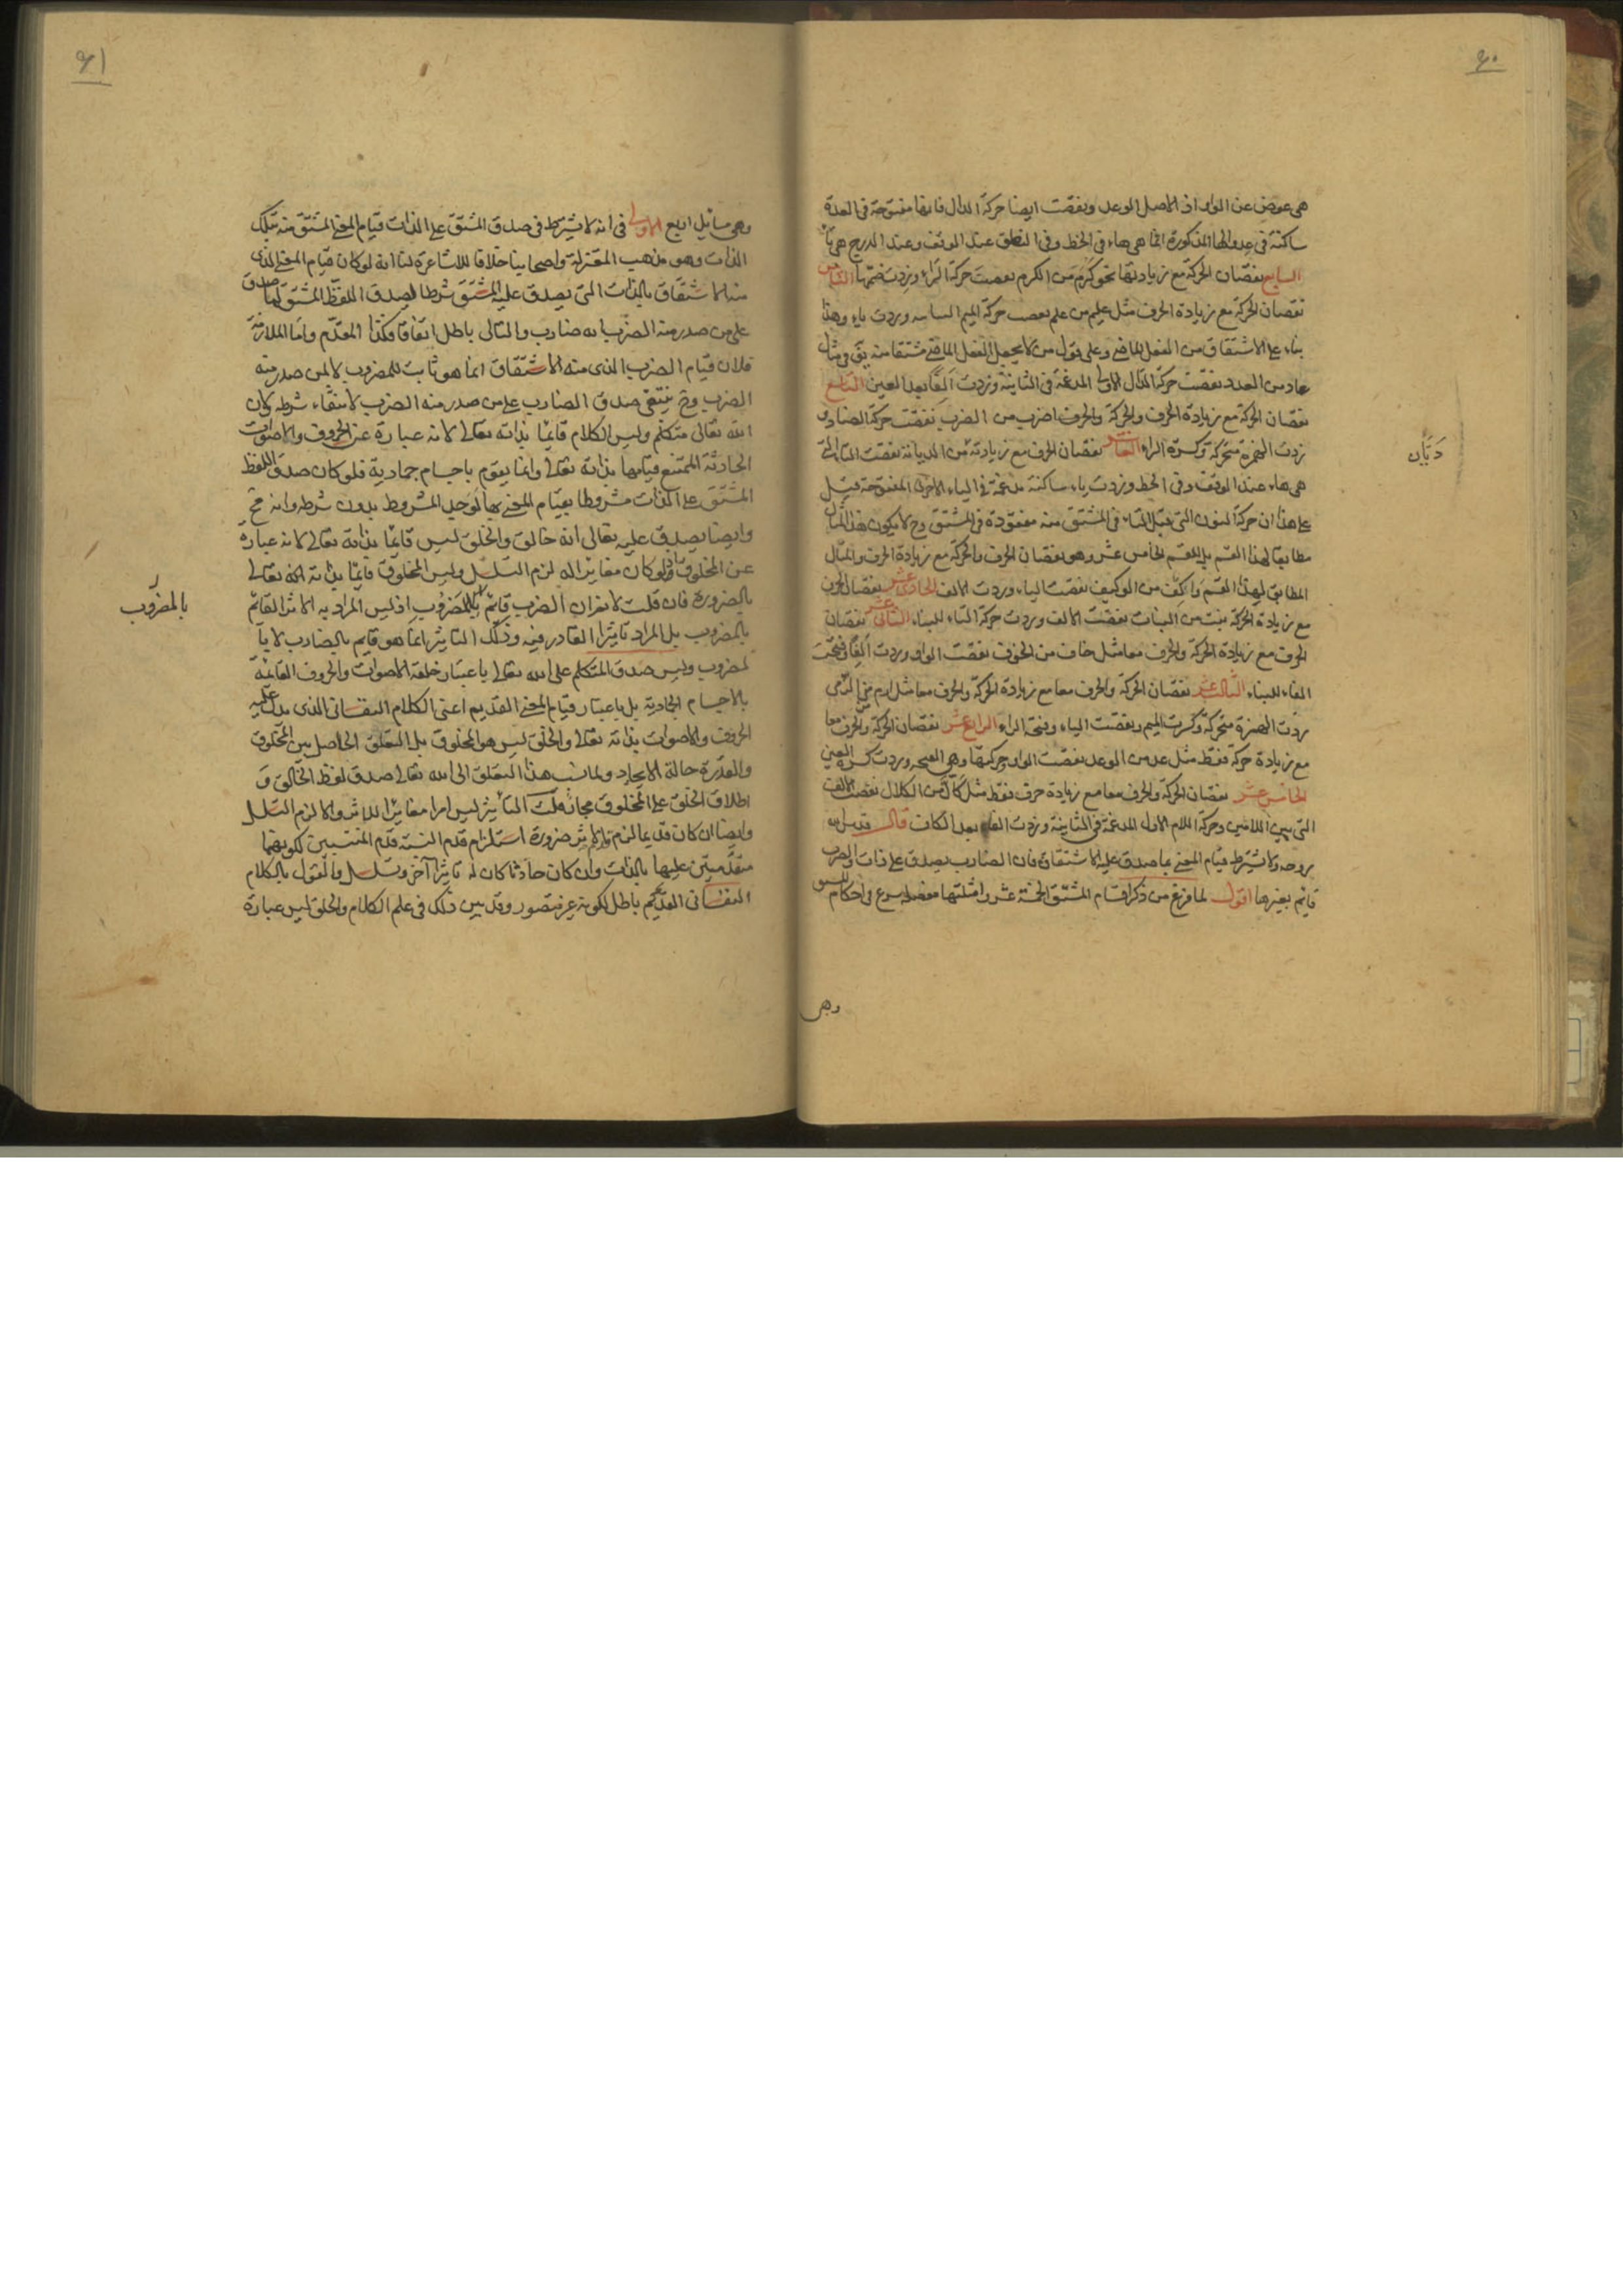 ٩٠
هى عوض عن الواو اذ الاصل الوعد ونقصت ايضا حركة الدال فانها مفتوحة فى العدة
ساكنة فى عدوالها المذكورة انما هى هاء فى الخط وفى النطق عند الوقف وعند الدرج هى تاء
السابع نقصان الحركة مع زيادتها نحو كرم من الكرم نقصت حركة الراء وزدت ضمتها الثامن
نقصان الحركة مع زيادة الحرف مثل عليم من علم نقصت حركة الميم وزدت ياء وهذا
بناء على الاشتقاق من الفعل الماضى وعلى قول من لا يجعل الفعل الماضى مشتقا منه
عاد من العدد نقصت حركة الدال الاولى المدغمة فى الثانية وزدت الفا بعد العين التاسع
نقصان الحركة مع زيادة الحرف والحركة والحرف اضرب من الضرب نقصت حركة الضاد و
زدت الهمزة متحركة وكسرة الراء العاشر نقصان الحرف مع زيادته من الديانة نقصت التاء التى
هى هاء عند الوقف وفى الخط وزدت ياء ساكنة مدغمة فى الياء الاخرى المفتوحة قيل
على هذا ان حركة النون التى قبل التاء فى المشتق منه مفقودة فى المشتق وح لا يكون هذا المثال
مطابقا لهذا القسم بل للقسم الخامس عشر وهو نقصان الحرف والحركة مع زيادة الحرف والمثال
المطابق لهذا القسم واكف من الوكيف نقصت الياء وزدت الالف الحادى عشر نقصان الحرف
مع زيادة الحركة نبت من النبات نقصت الالف وزدت حركة التاء للبناء الثانى عشر نقصان
الحرف مع زيادة الحركة والحرف معا مثل خاف من الخوف نقصت الواو وزدت الفا وفتحت
الفاء للبناء الثالث عشر نقصان الحركة والحرف معا مع زيادة الحركة والحرف معا مثل ارم من الرمى
زدت الهمزة متحركة وكسرت الميم ونقصت الياء وفتحة الراء الرابع عشر نقصان الحركة والحرف معا
مع زيادة حركة فقط مثل عد من الوعد نقصت الواو وحركتها وهى الفتحة وزدت كسرة العين
الخامس عشر نقصان الحركة والحرف معا مع زيادة حرف فقط مثل كال من الكلال نقصت الالف
التى بين اللامين وحركة اللام الاول المدغمة فى الثانية وزدت الفا بعد الكاف قال قدس الله
روحه ولا يشترط قيام المعنى بما صدق عليه الاشتقاق فان الضارب يصدق على ذات والضرب
قايم بغيرها اقول لما فرغ من ذكر اقسام المشتق الخمسة عشر وامثلتها مفصلا شرع فى احكام المشتق
ديان
وهى
٩١
وهى مسائل اربع الاولى فى انه لا يشترط فى صدق المشتق على الذات قيام المعنى المشتق منه بتلك
الذات وهو مذهب المعتزلة واصحابنا خلافا للاشاعرة لنا انه لو كان قيام المعنى الذى
منه الاشتقاق بالذات التى يصدق عليه المشتق شرطا لصدق اللفظ المشتق لما صدق
على من صدر منه الضرب انه ضارب والتالى باطل اتفاقا فكذا المقدم واما الملازمة
فلان قيام الضرب الذى منه الاشتقاق انما هو ثابت للمضروب لا لمن صدر منه
الضرب وح ينتفى صدق الضارب على من صدر منه الضرب لانتفاء شرطه ولان
الله تعالى متكلم وليس الكلام قائما بذاته تعالى لانه عبارة عن الحروف والاصوات
الحادثة الممتنع قيامها بذاته تعالى وانما يقوم باجسام جمادية فلو كان صدق اللفظ
المشتق على الذات مشروطا بقيام المعنى بها لوجد المشروط بدون شرطه وانه مح
وايضا يصدق عليه تعالى انه خالق والخلق ليس قائما بذاته تعالى لانه عبارة
عن المخلوق اذ لو كان مغايرا له لزم التسلسل وليس المخلوق قائما بذاته تعالى
بالضرورة فان قلت لا نم ان الضرب قائم بالمضروب اذ ليس المراد به الاثر القائم
بالمضروب بل المراد تاثيرا القادر فيه وذلك التاثير انما هو قايم بالضارب لا با
لمضروب وليس صدق المتكلم على الله تعالى باعتبار خلقة الاصوات والحروف القائمة
بالاجسام الجمادية بل باعتبار قيام المعنى القديم اعنى الكلام النفسانى الذى يدل عليه
الحروف والاصوات بذاته تعالى والخلق ليس هو المخلوق بل التعلق الحاصل بين المخلوق
والقدرة حالة الايجاد ولما نسب هذا التعلق الى الله تعالى صدق لفظ الخالق و
اطلاق الخلق على المخلوق مجاز قلت التاثير ليس امرا مغايرا للاثر والا لزم التسلسل
وايضا ان كان قديما لزم قدم الاثر ضرورة استلزام قدم النسبة قدم المنتسبين لكونهما
متقدمين عليها بالذات وان كان حادثا كان له تاثيرا آخر وتسلسل والقول بالكلام
النفسانى القديم باطل لكونه غير متصور وقد بين ذلك فى علم الكلام والخلق ليس عبارة
بالمضروب